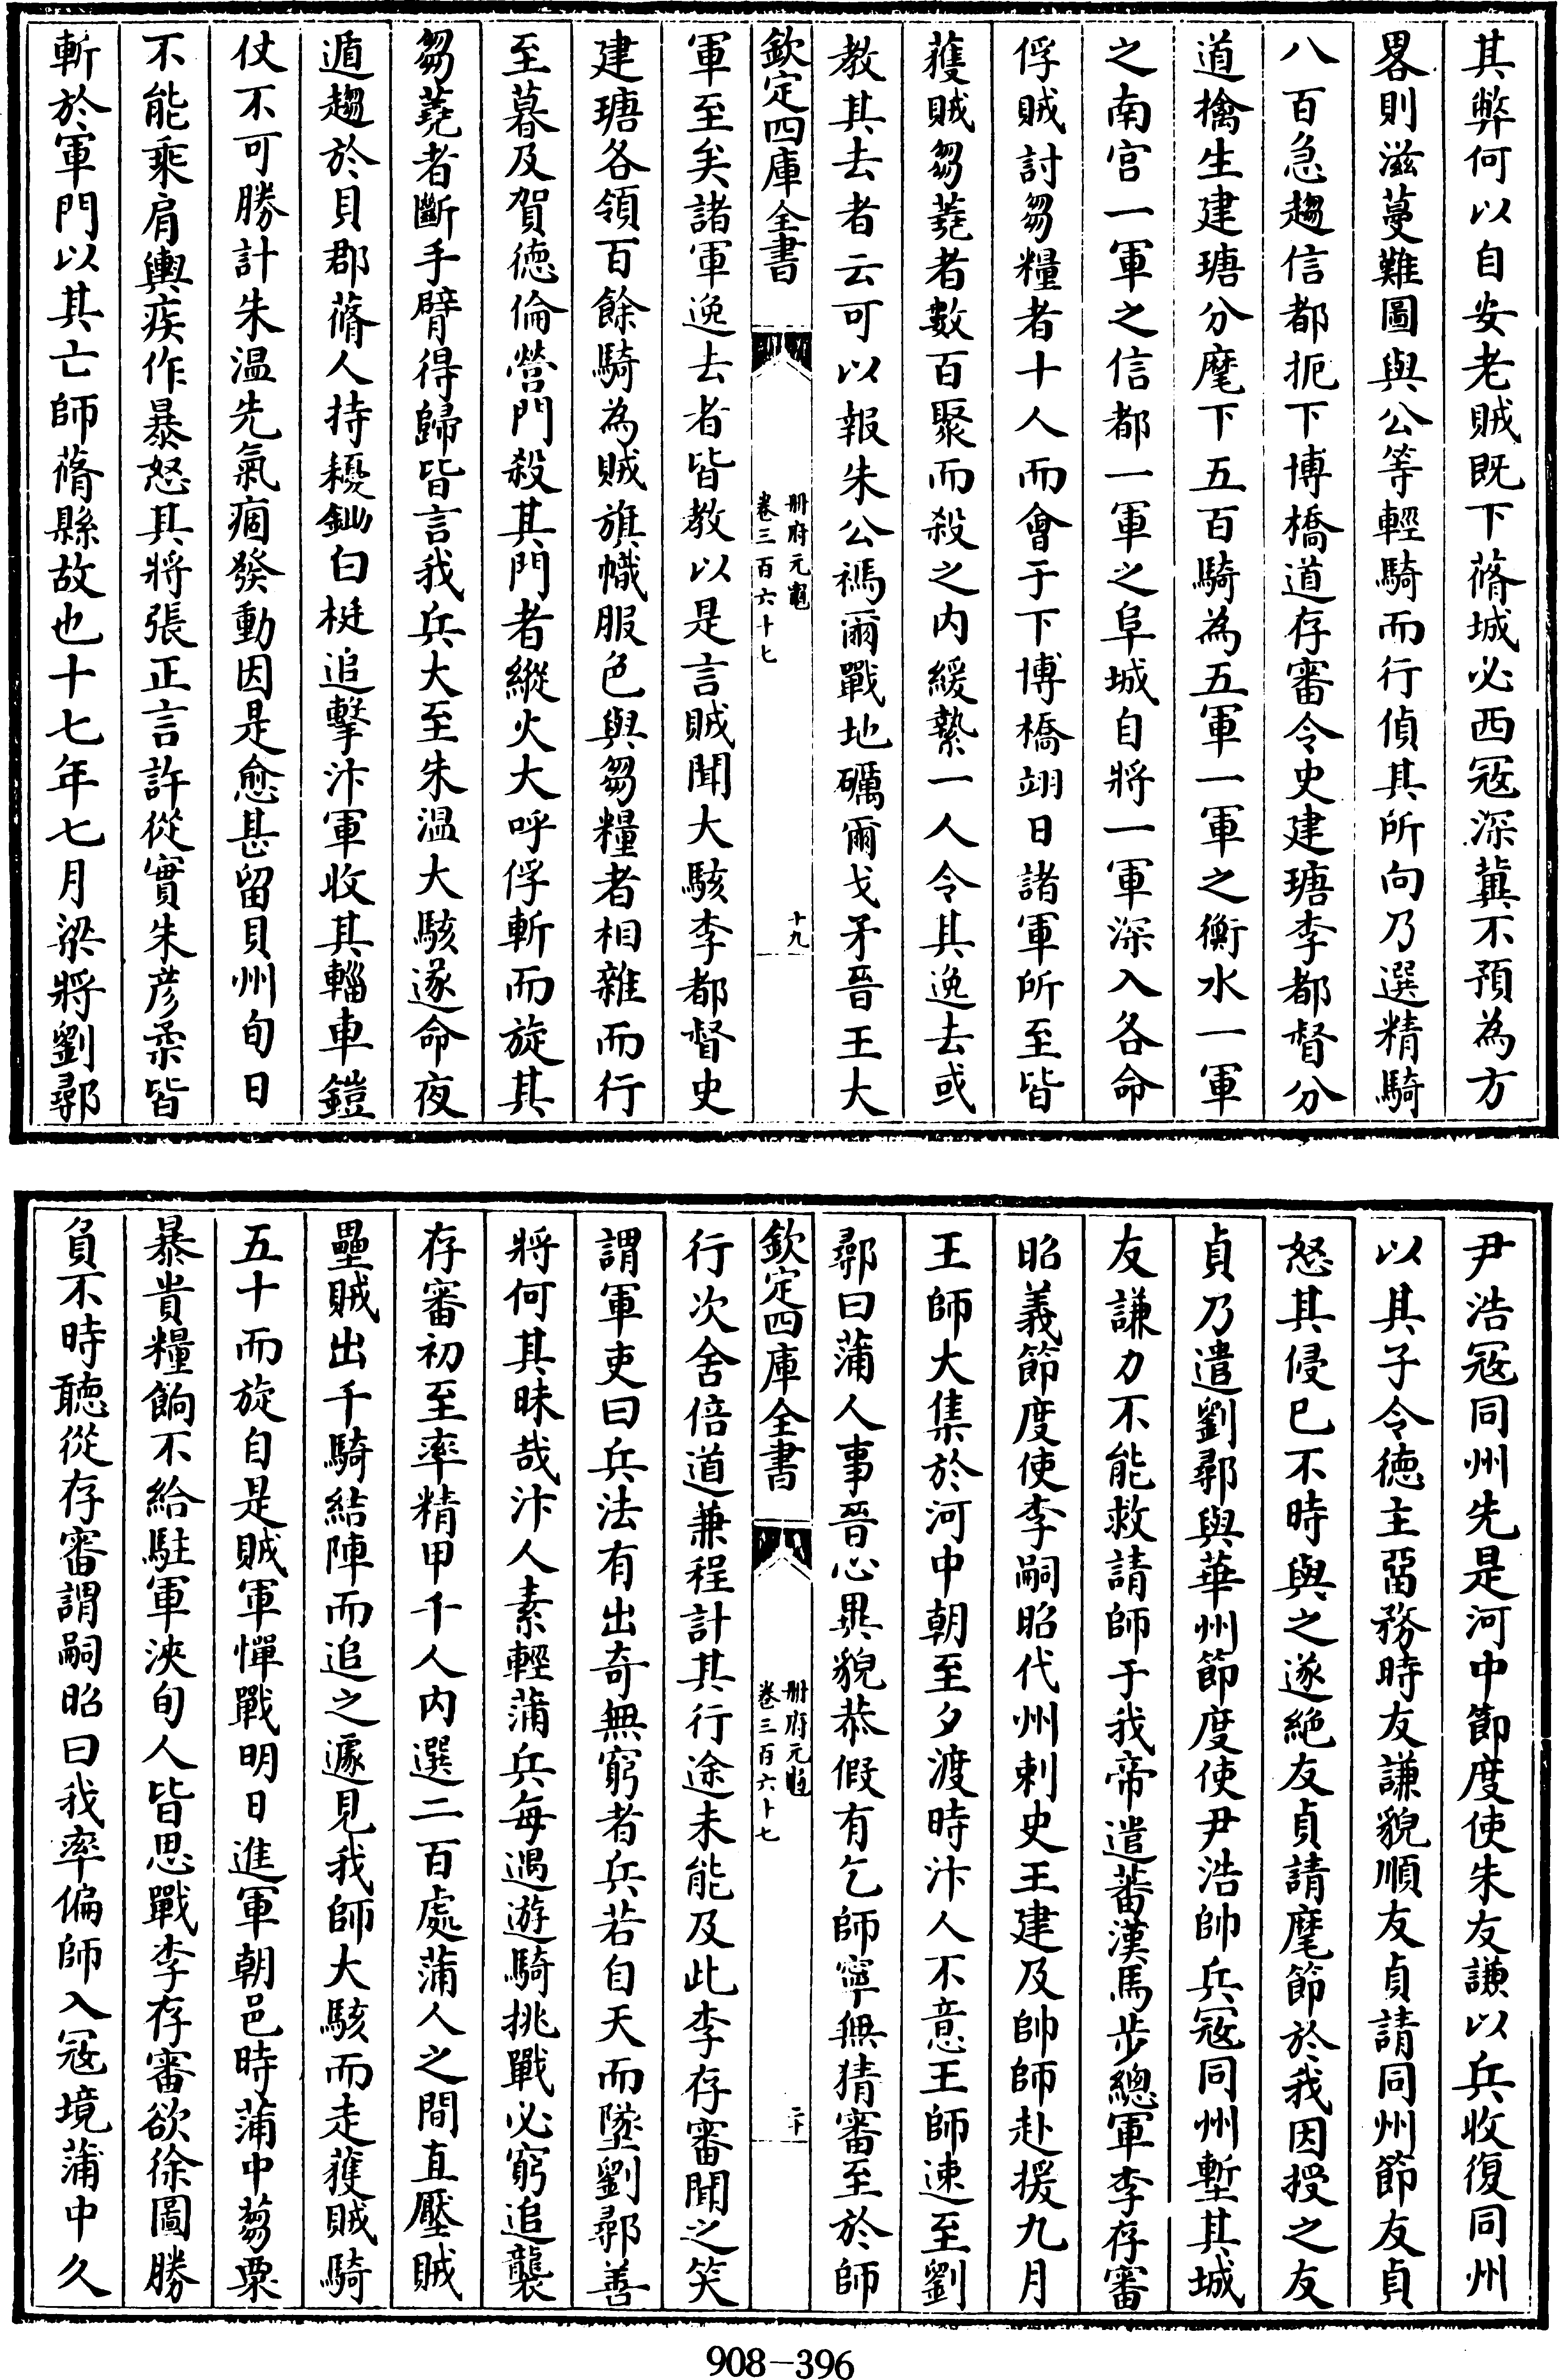 其弊何以自安老賊既下蓨城必西冦深冀不預為方
畧則滋蔓難圖與公等輕騎而行偵其所向乃選精騎
八百急趨信都扼下博橋道存審令史建瑭李都督分
道擒生建瑭分麾下五百騎為五軍一軍之衡水一軍
之南宫一軍之信都一軍之阜城自將一軍深入各命
俘賊討芻糧者十人而會于下博橋翊日諸軍所至皆
獲賊芻蕘者數百聚而殺之内緩縶一人令其逸去或
教其去者云可以報朱公禡爾戰地礪爾戈矛晉王大
欽定四庫全書
册府元龜
卷三百六十七
十九
軍至矣諸軍逸去者皆教以是言賊聞大駭李都督史
建瑭各領百餘騎為賊旗幟服色與芻糧者相雜而行
至暮及賀徳倫營門殺其門者縱火大呼俘斬而旋其
芻蕘者斷手臂得歸皆言我兵大至朱温大駭遂命夜
遁趨於貝郡蓨人持耰鉏白梃追擊汴軍收其輜車鎧
仗不可勝計朱温先氣痼發動因是愈甚留貝州旬日
不能乘肩輿疾作暴怒其將張正言許從實朱彦柔皆
斬於軍門以其亡師蓨縣故也十七年七月梁將劉鄩
尹浩冦同州先是河中節度使朱友謙以兵收復同州
以其子令徳主畱務時友謙貌順友貞請同州節友貞
怒其侵已不時與之遂絶友貞請麾節於我因授之友
貞乃遣劉鄩與華州節度使尹浩帥兵冦同州塹其城
友謙力不能救請師于我帝遣蕃漢馬步總軍李存審
昭義節度使李嗣昭代州刺史王建及帥師赴援九月
王師大集於河中朝至夕渡時汴人不意王師速至劉
鄩曰蒲人事晉心異貌恭假有乞師寧無猜審至於師
欽定四庫全書
册府元龜
卷三百六十七
二十
行次舍倍道兼程計其行途未能及此李存審聞之笑
謂軍吏曰兵法有出奇無窮者兵若自天而墜劉鄩善
將何其昧哉汴人素輕蒲兵每遇遊騎挑戰必窮追襲
存審初至率精甲千人内選二百處蒲人之間直壓賊
壘賊出千騎結陣而追之遽見我師大駭而走獲賊騎
五十而旋自是賊軍憚戰明日進軍朝邑時蒲中芻粟
暴貴糧餉不給駐軍浹旬人皆思戰李存審欲徐圖勝
負不時聽從存審謂嗣昭曰我率偏師入冦境蒲中久
908-396